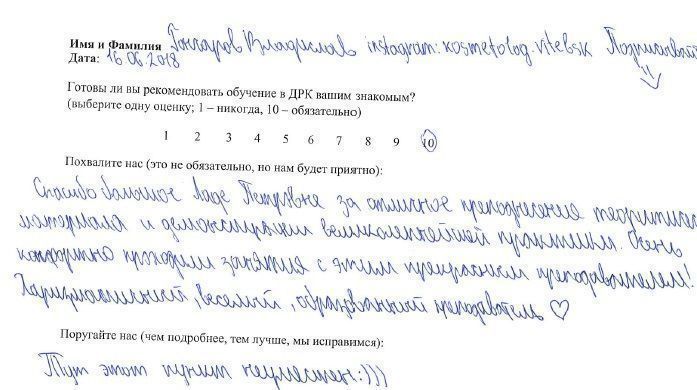 Имя и Фамилия Гончаров Владислав instagram: kosmetolog.vitebsk Подписывай
Дата: 16.06.2018
Готовы ли вы рекомендовать обучение в ДРК вашим знакомым?
(выберите одну оценку; 1 – никогда, 10 – обязательно)
1 2 3 4 5 6 7 8 9 10
Похвалите нас (это не обязательно, но нам будет приятно):
Спасибо большое Ладе Петровне за отличное преподнесение теоретич
материала и демонстрации великолепнейшей практики. Очень
комфортно проходили занятия с этим прекрасным преподавателем!
Харизматичный, веселый, образованный преподаватель ♡
Поругайте нас (чем подробнее, тем лучше, мы исправимся):
Тут этот пункт неуместен:)))